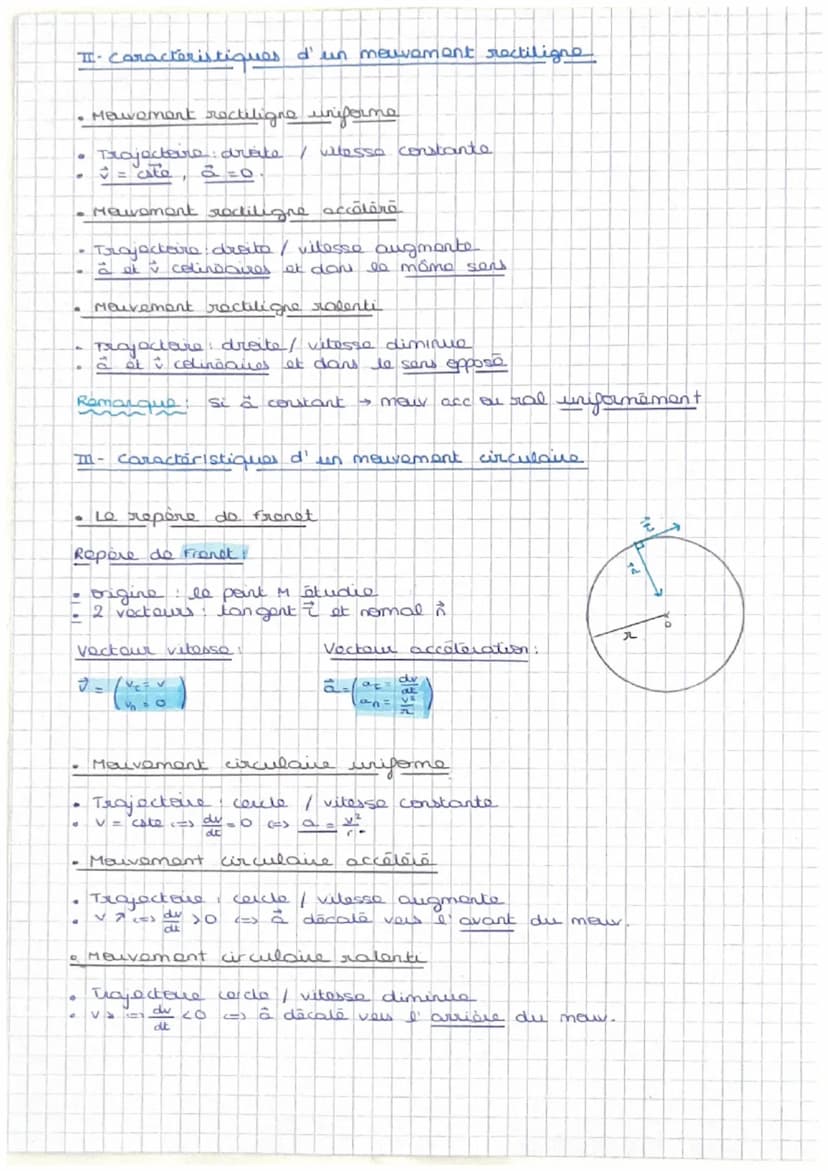 II- Caractéristiques d'un mouvement rectiligne
• Mouvement rectiligne uniforme
• Trajectoire : droite / vitesse constante
• v⃗ = cste, a⃗ = 0.
• Mouvement rectiligne accéléré
• Trajectoire : droite / vitesse augmente
• a⃗ et v⃗ colinéaires et dans le même sens
• Mouvement rectiligne ralenti
• Trajectoire : droite / vitesse diminue
• a⃗ et v⃗ colinéaires et dans le sens opposé
Remarque : Si a⃗ constant → mouv acc ou ral uniformément
III- Caractéristiques d'un mouvement circulaire
• Le repère de Frenet
Repère de Frenet :
• origine : le point M étudié
• 2 vecteurs : tangent τ⃗ et normal n⃗
τ⃗
n⃗
r
O
Vecteur vitesse : Vecteur accélération :
v⃗ = (vτ = v a⃗ = (aτ = dv/dt
vn = 0) an = v²/r)
• Mouvement circulaire uniforme
• Trajectoire : cercle / vitesse constante
• v = cste <=> dv/dt = 0 <=> a = v²/r
• Mouvement circulaire accéléré
• Trajectoire : cercle / vitesse augmente
• v ↗ <=> dv/dt > 0 <=> a⃗ décalé vers l'avant du mouv.
• Mouvement circulaire ralenti
• Trajectoire cercle / vitesse diminue
• v ↘ <=> dv/dt < 0 <=> a⃗ décalé vers l'arrière du mouv.